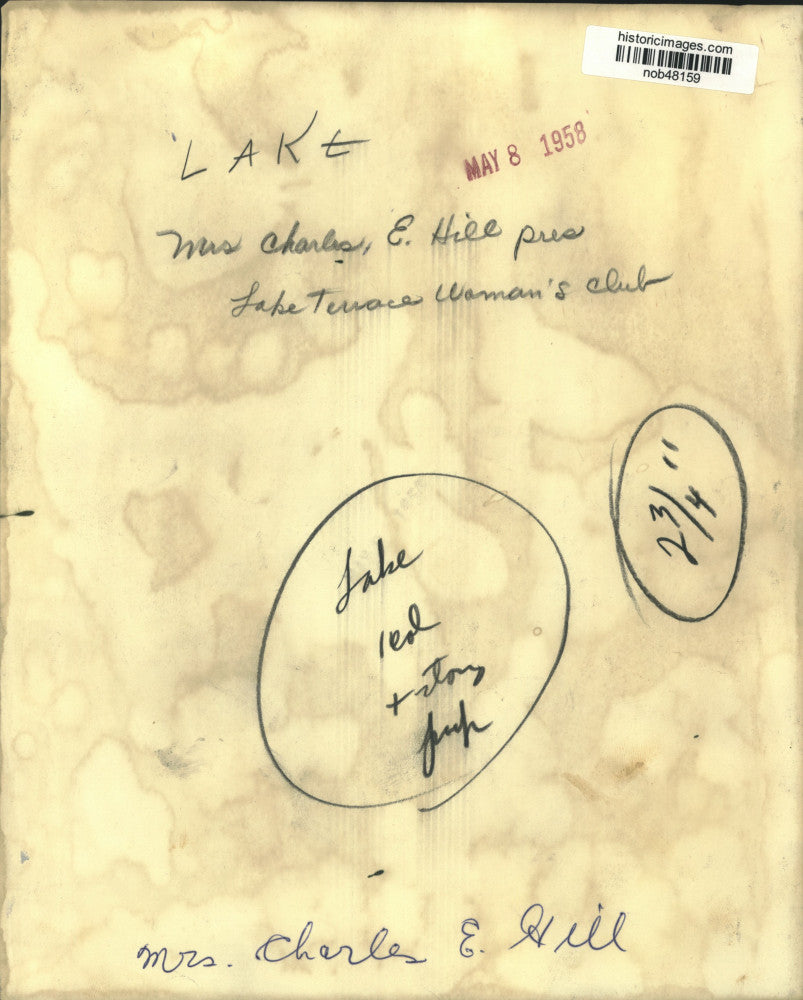 historicimages.com
nob48159
LAKE
MAY 8 1958
Mrs Charles, E. Hill pres
Lake Terrace Woman's club
2 3/4"
Lake
1 col
+ story
Mrs. Charles E. Hill